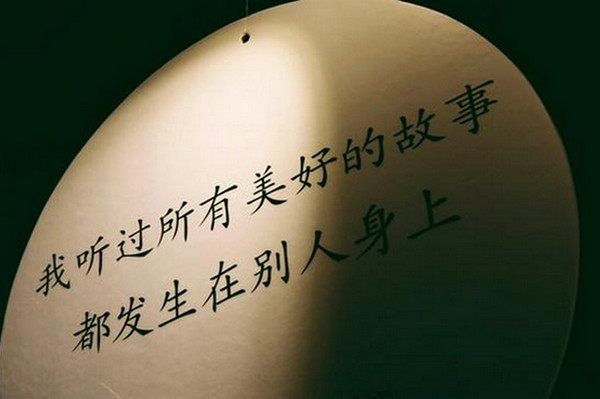 我听过所有美好的故事
都发生在别人身上